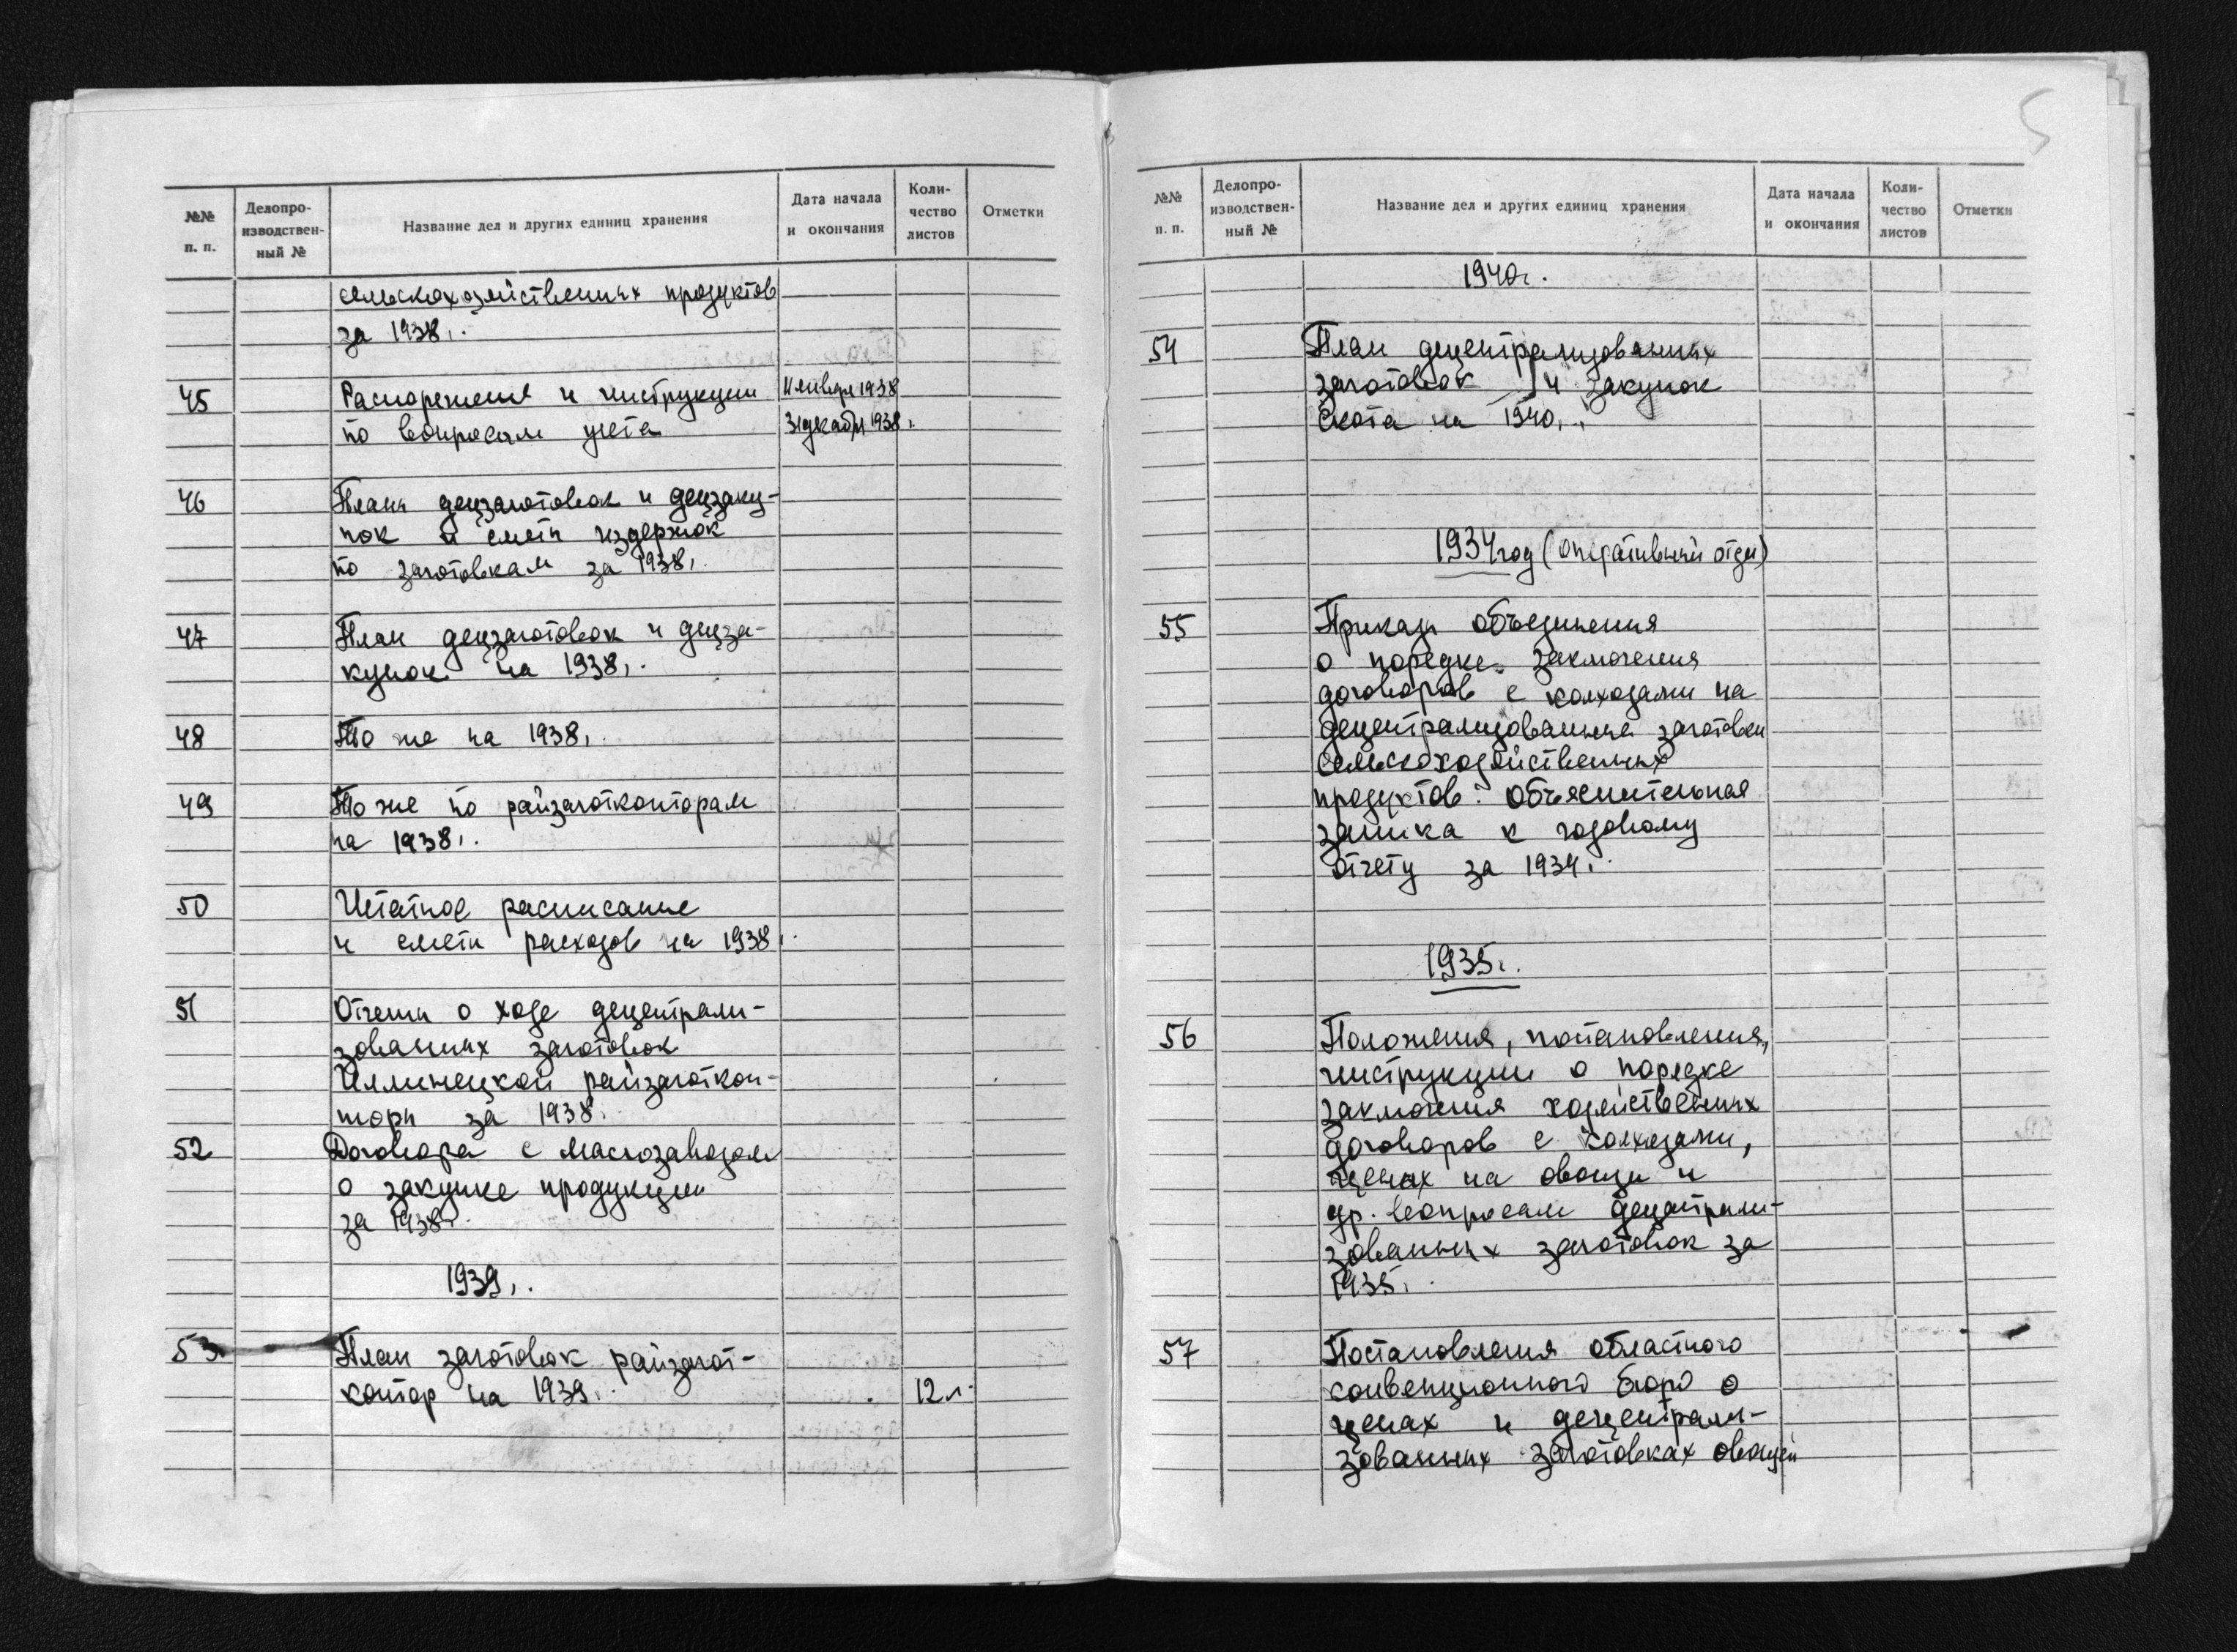 №№ п. п.
Делопро-
изводствен-
ный №
Название дел и других единиц хранения
Дата начала
и окончания
Коли-
чество
листов
Отметки
сельскохозяйственных продуктов
за 1938г.
45 Распоряжения и инструкции
по вопросам учета
1 января 1938
31 декабря 1938г.
46 Планы децзаготовок и децзаку-
пок и сметы издержок
по заготовкам за 1938г.
47 План децзаготовок и децза-
купок на 1938г.
48 То же на 1938г.
49 То же по райзаготконторам
на 1938г.
50 Штатное расписание
и сметы расходов на 1938г.
51 Отчеты о ходе децентрали-
зованных заготовок
Иллинецкой райзаготкон-
торы за 1938г.
52 Договора с маслозаводом
о закупке продукции
за 1938г.
1939г.
53 План заготовок райзагот-
контор на 1939г. 12 л.
5
№№
п. п.
Делопро-
изводствен-
ный №
Название дел и других единиц хранения
Дата начала
и окончания
Коли-
чество
листов
Отметки
1940г.
54 План децентрализованных
заготовок и закупок
скота на 1940г.
1934 год (оперативный отдел)
55 Приказы объединения
о порядке заключения
договоров с колхозами на
децентрализованные заготовки
сельскохозяйственных
продуктов. Объяснительная
записка к годовому
отчету за 1934г.
1935г.
56 Положения, постановления,
инструкции о порядке
заключения хозяйственных
договоров с колхозами,
ценах на овощи и
др. вопросам децентрали-
зованных заготовок за
1935г.
57 Постановления областного
конвенционного бюро о
ценах и децентрали-
зованных заготовках овощей